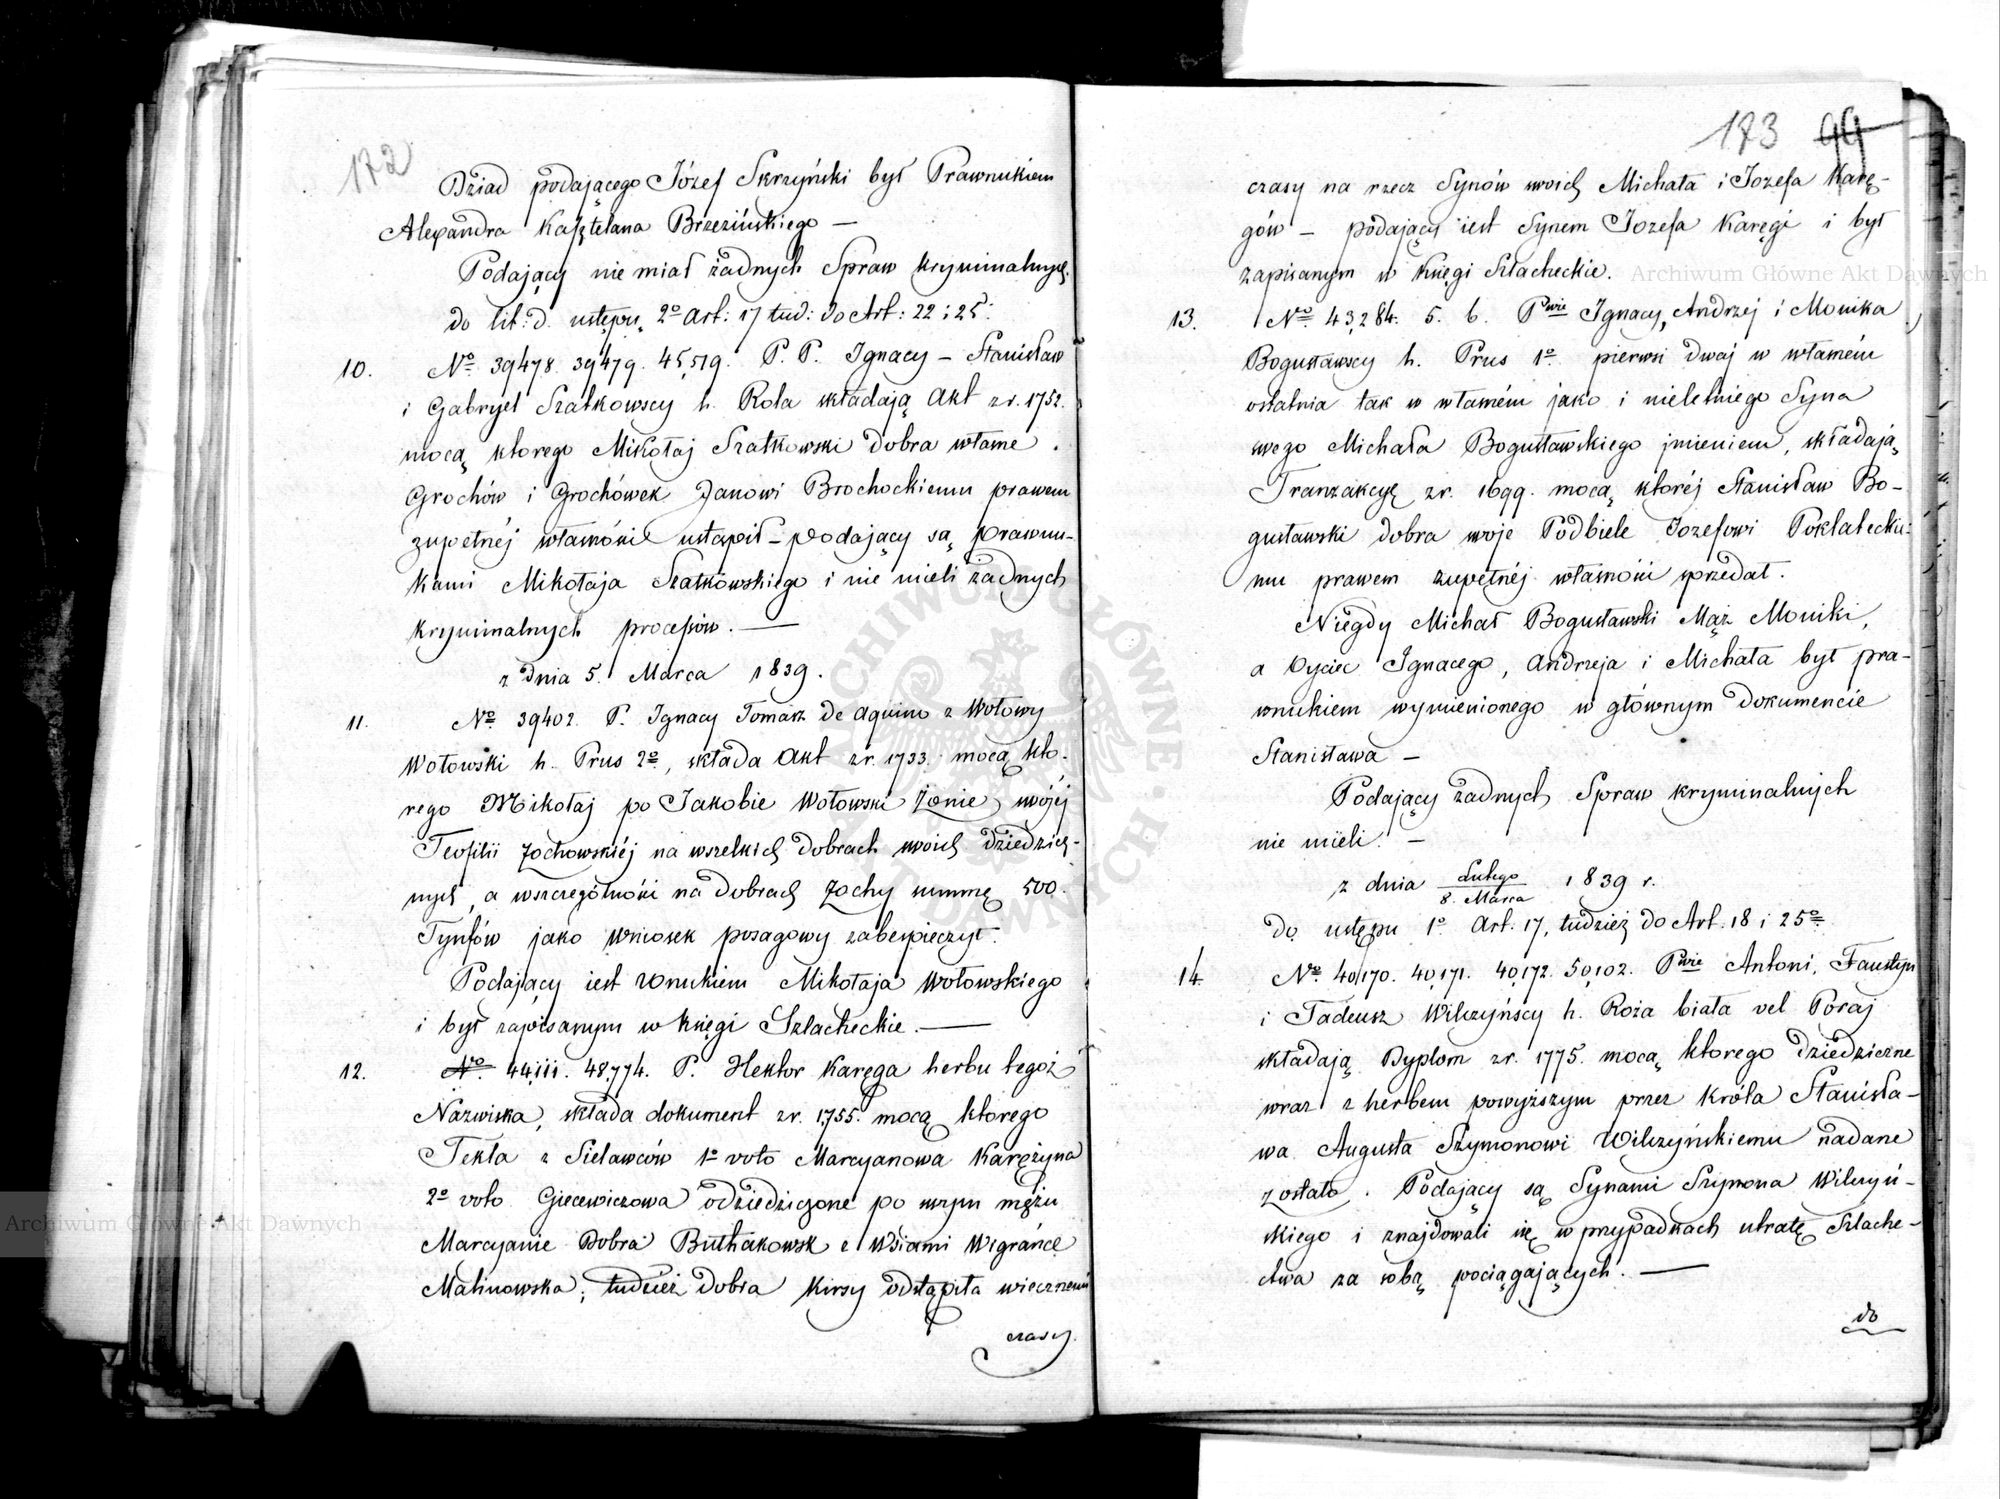 172
Dziad podającego Józef Skrzyński był Prawnukiem
Alexandra Kasztelana Brzezińskiego —
Podający nie miał żadnych Spraw kryminalnych.
do lit: d. ustępu 2º Art: 17 tud: do Art: 22 i 25:
10. Nº 39478. 39479. 45,519. P. P. Ignacy – Stanisław
i Gabryel Szatkowscy h. Rola składają Akt z r. 1752.
mocą ktorego Mikołaj Szatkowski dobra własne
Grochów i Grochówek Janowi Brochockiemu prawem
zupełnéj własności ustąpił – podający są prawnu-
kami Mikołaja Szatkowskiego i nie mieli żadnych
kryminalnych processów. —
z dnia 5. Marca 1839.
11. Nº 39402. P. Ignacy Tomasz de Aquino z Wołowy
Wołowski h. Prus 2º, składa Akt z r. 1733. mocą kto-
rego Mikołaj po Jakobie Wołowski Żonie swojéj
Teofilii Żochowskiéj na wszelkich dobrach swoich dziedzicz-
nych, a wszczególności na dobrach Żochy summę 500.
Tynfów jako wniosek posagowy zabespieczył.
Podający iest wnukiem Mikołaja Wołowskiego
i był zapisanym w księgi Szlacheckie. —
12. Nº 44,111. 48,774. P. Hektor Karęga herbu tegoż
Nazwiska, składa dokument z r. 1755. mocą ktorego
Tekla z Sielawców 1º voto Marcyanowa Karężyna
2º voto Giecewiczowa odziedziczone po swym mężu
Marcyanie Dobra Buthakowsk z Wsiami Wigrańce
Malinowska, tudzież dobra Kirsy odstąpiła wiecznemi
czasy.
173 99
czasy na rzecz Synów swoich Michała i Jozefa Karę-
gów – podający iest Synem Jozefa Karęgi i był
zapisanym w Księgi Szlacheckie.
13. Nº 43,284. 5. 6. Pwie Ignacy, Andrzej i Monika
Bogusławscy h. Prus 1º pierwsi dwaj w własném
ostatnia tak w własném jako i nieletniego Syna
swego Michała Bogusławskiego imieniem, składają
Tranzakcyę z r. 1699. mocą ktoréj Stanisław Bo-
gusławski dobra swoje Podbiele Jozefowi Pokłateckie:
mu prawem zupełnéj własności sprzedał.
Niegdy Michał Bogusławski Mąż Moniki,
a Oyciec Ignacego, Andrzeja i Michała był pra-
wnukiem wymienionego w głównym dokumencie
Stanisława —
Podający żadnych Spraw kryminalnych
nie mieli. —
z dnia Lutego / 8. Marca 1839 r.
do ustępu 1º Art: 17, tudzież do Art. 18 i 25º
14. Nº 40,170. 40,171. 40,172. 50,102. Pwie Antoni, Faustyn
i Tadeusz Wilczyńscy h. Roża biała vel Poraj
składają Dyplom z r. 1775. mocą ktorego dziedziczne
wraz z herbem powyższym przez króla Stanisła-
wa Augusta Szymonowi Wilczyńskiemu nadane
zostało. Podający są Synami Szymona Wilczyń-
skiego i znajdowali się w przypadkach utratę Szlache-
ctwa za sobą pociągających. —
do
Archiwum Główne Akt Dawnych
Archiwum Główne Akt Dawnych
ARCHIWUM GŁÓWNE AKT DAWNYCH